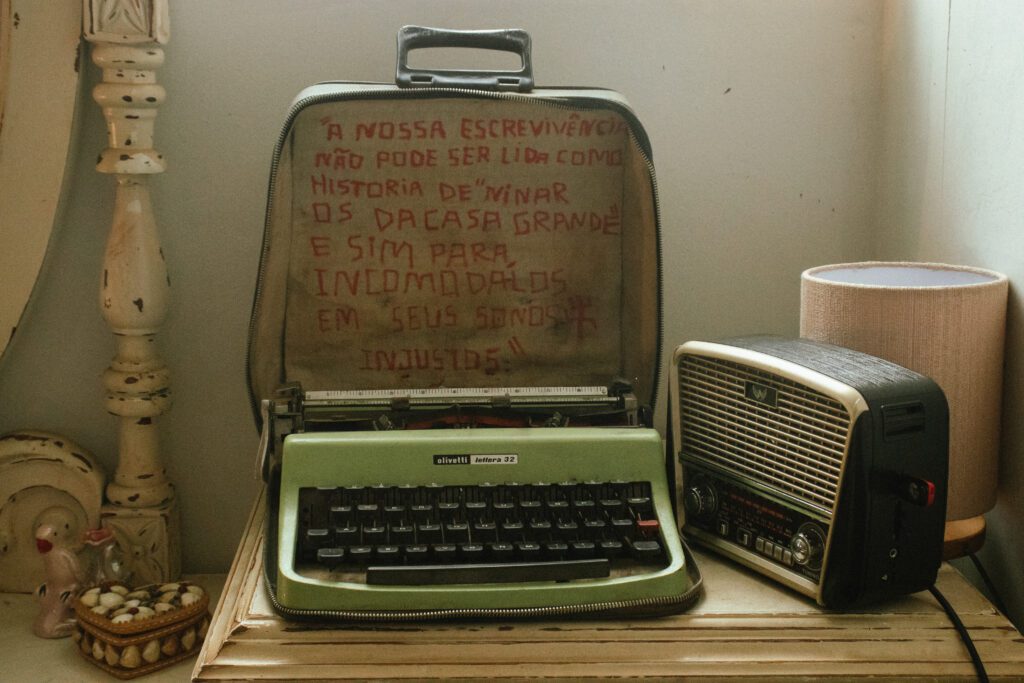 "A NOSSA ESCREVIVÊNCIA
NÃO PODE SER LIDA COMO
HISTORIA DE "NINAR
OS DA CASA GRANDE"
E SIM PARA
INCOMODÁ-LOS
EM SEUS SONOS
INJUSTOS."
olivetti lettera 32
W